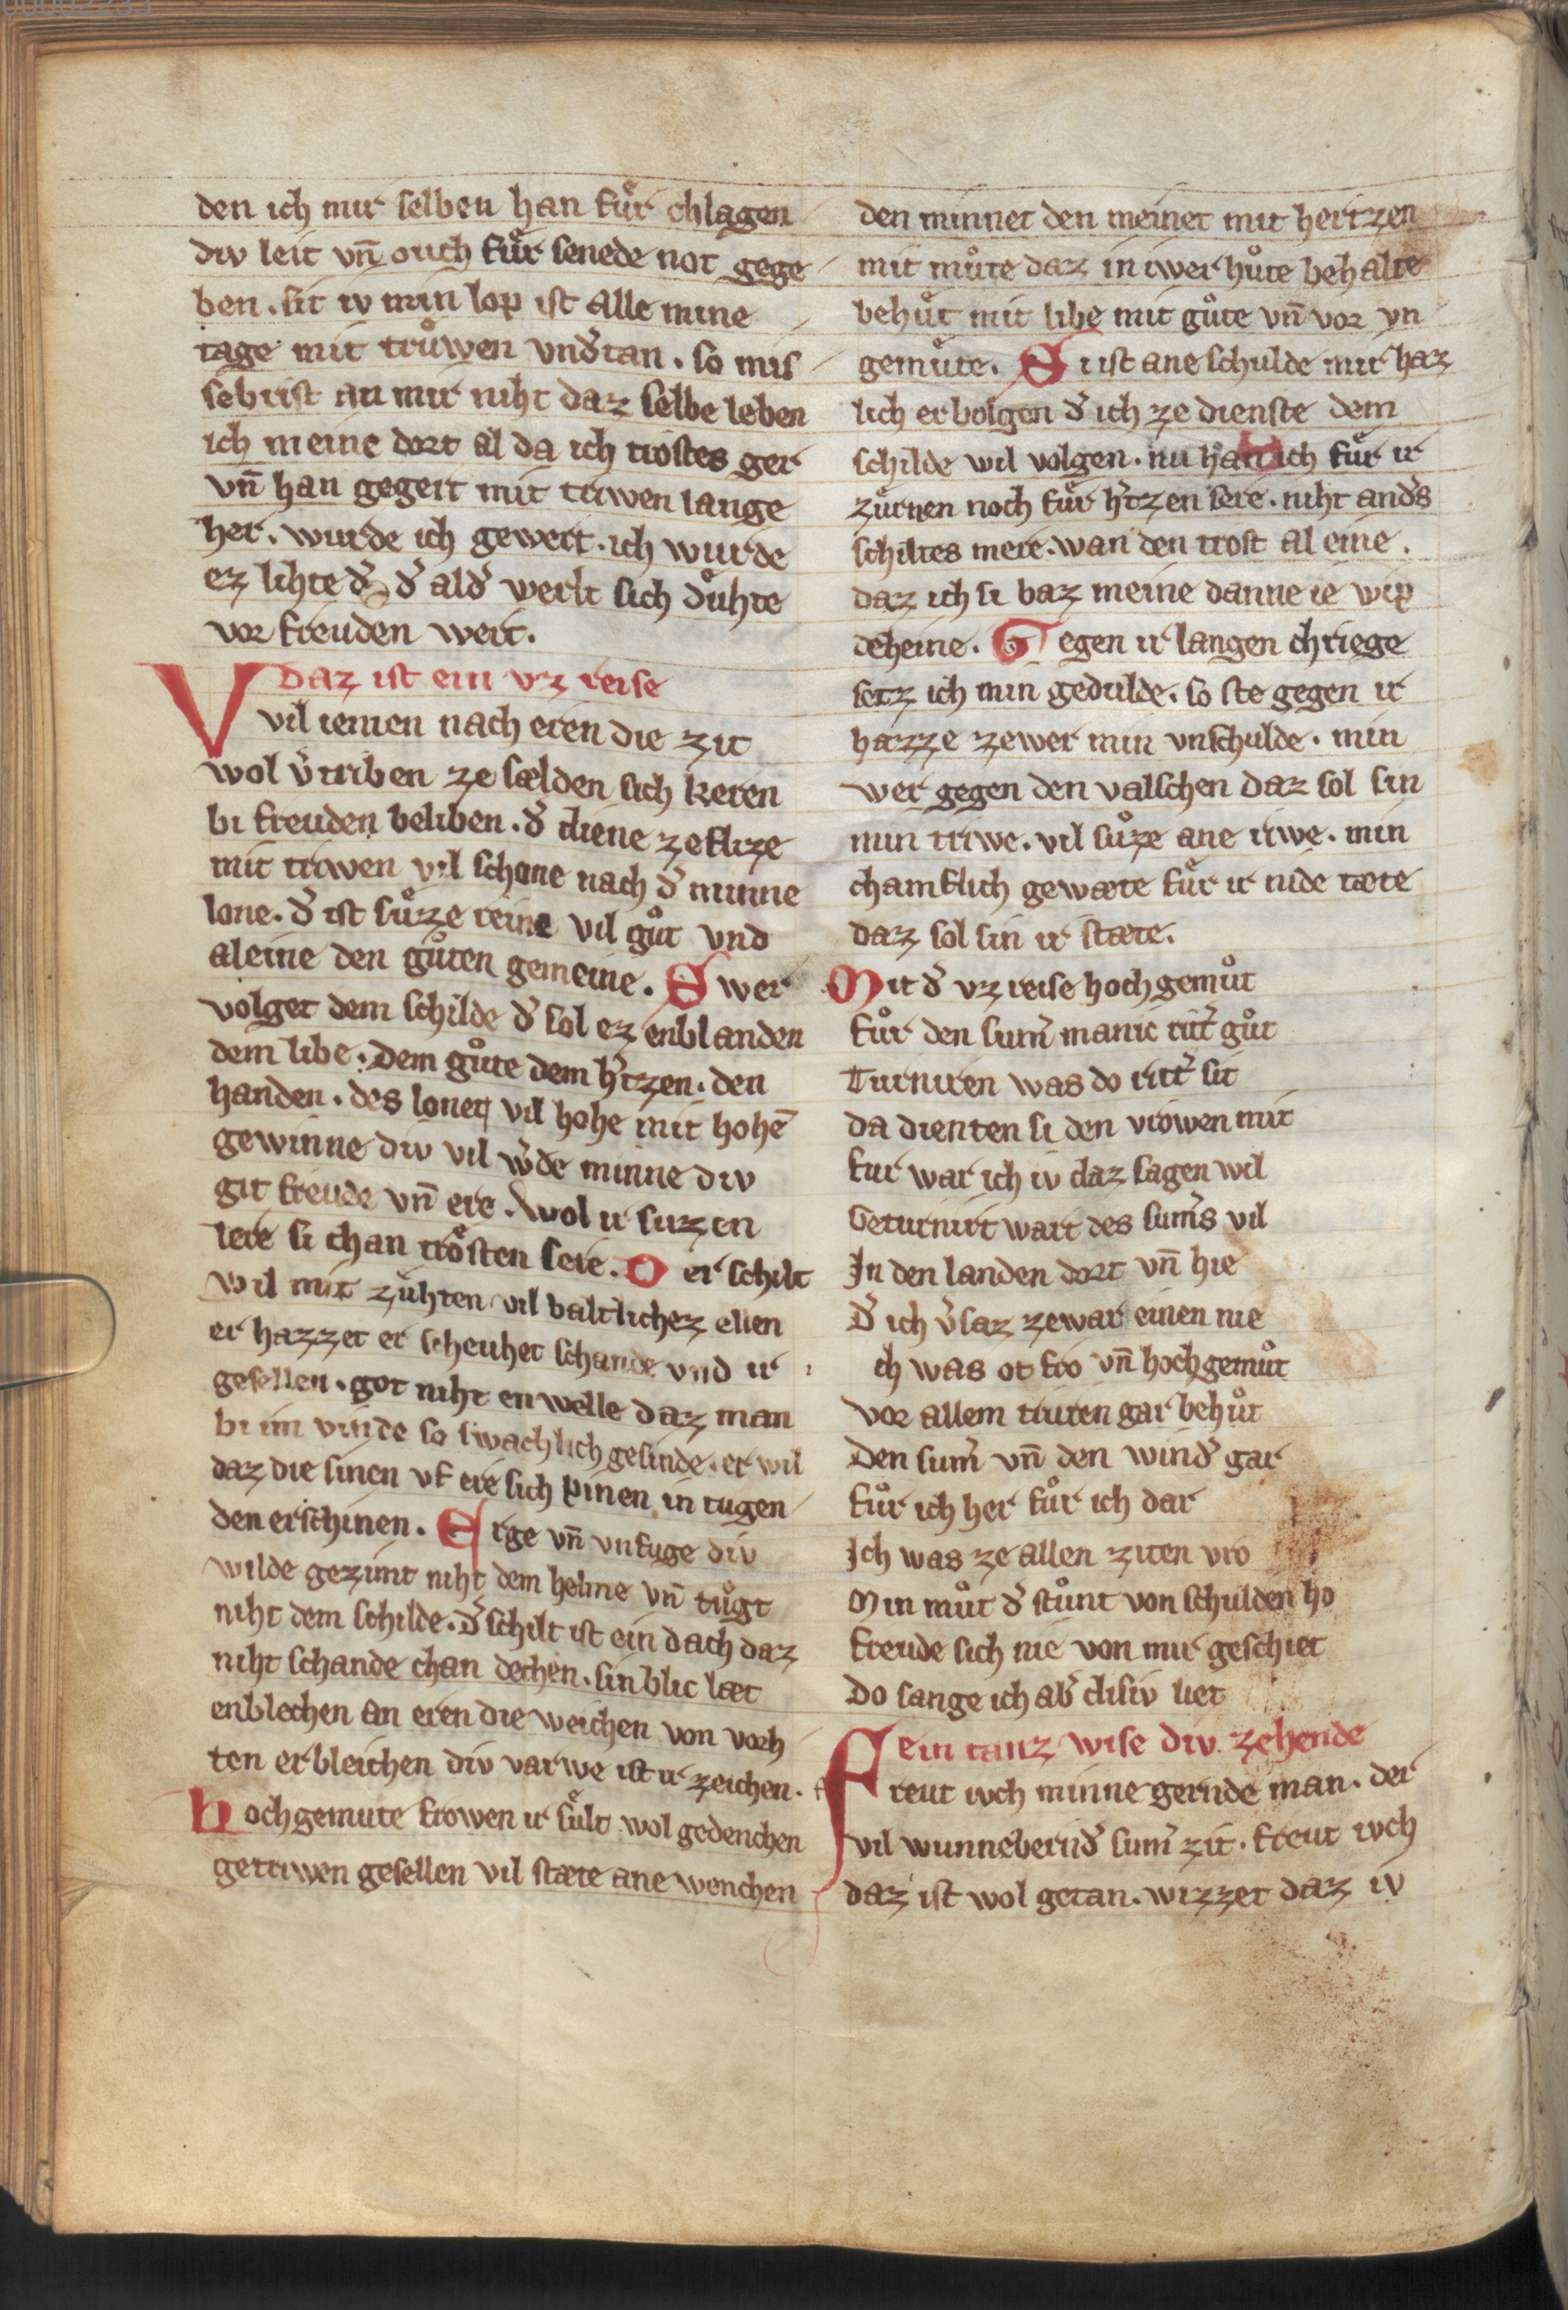 den ich mir selben han fuͤr chlagen
div leit vn̄ ouch fuͤr senede not gege
ben . sit iv min lop ist alle mine
tage mit truͤwen vnd̾tan . so mis
seb rist an mir niht daz selbe leben
ich meine dort al da ich trostes ger
vn̄ han gegert mit triwen lange
her . wurde ich gewert . ich wurde
ez lihte d̾ d̾ ald̾ werlt sich duͤhte
vor freuden wert .
daz ist ein vz reise
Vil iemen nach eren die zit
wol v̾triben ze sælden sich keren
bi freuden beliben . d̾ diene ze flize
mit triwen vil schone nach d̾ minne
lone . d̾ ist suͤzze reine vil guͦt vnd
aleine den guͦten gemeine . Swer
volget dem schilde d̾ sol ez enblanden
dem libe . dem guͦte dem h̾tzen . den
handen . des lonet vil hohe mit hohē
gewinne div vil w̾de minne div
git freude vn̄ ere . wol ir suzen
lere si chan troͤsten sere . Der schilt
wil mit zuͤhten vil baltlichez ellen
er hazzet er scheuhet schande vnd ir
gesellen . got niht en welle daz man
bi im vinde so swachlich gesinde . er wil
daz die sinen vf ere sich pinen in tugen
den erschinen . Erge vn̄ vnfuge div
wilde gezimt niht dem helme vn̄ tuͦgt
niht dem schilde . d̾ schilt ist ein dach daz
niht schande chan dechen . sin blic læt
enblechen an eren die weichen von vorh
ten erbleichen div varwe ist ir zeichen .
Hochgemute frowen ir suͤlt wol gedenchen
getriwen gesellen vil stæte ane wenchen
den minnet den meinet mit hertzen
mit muͦte daz in iwer huͦte behalte
behuͤt mit libe mit guͦte vn̄ vor vn
gemuͤte . Si ist ane schulde mir haz
lich erbolgen d̾ ich ze dienste dem
schilde wil volgen . nu han ich fuͤr ir
zuͤrnen noch fuͤr h̾tzen sere . niht and̾s
schiltes mere . wan den trost al eine .
daz ich si baz meine danne ie wip
deheine . Gegen ir langen chriege
setz ich min gedulde . so ste gegen ir
hazze zewer min vnschulde . min
wer gegen den valschen daz sol sin
min triwe . vil suͤze ane riwe . min
chamflich gewæte fuͤr ir nide tæte
daz sol sin ir stæte .
Mit d̾ vz reise hochgemuͦt
fuͦr den sum̾ manic ritt̾ guͦt
Turniren was do ritt̾ sit
da dienten si den vrowen mit
fur war ich iv daz sagen wil
Geturnirt wart des sum̾s vil
In den landen dort vn̄ hie
D̾ ich v̾saz zewar einen nie
ch was ot fro vn̄ hochgemuͦt
vor allem truren gar behuͦt
Den sum̾ vn̄ den wind̾ gar
fuͦr ich her fuͦr ich dar
Ich was ze allen ziten vro
Min muͦt d̾ stuͦnt von schulden ho
freude sich nie von mir geschiet
Do sange ich ab̾ disiv liet
ein tanz wise div zehende
Freut ivch minne gernde man . der
vil wunnebernd̾ sum̾ zit . freut ivch
daz ist wol getan . wizzet daz iv